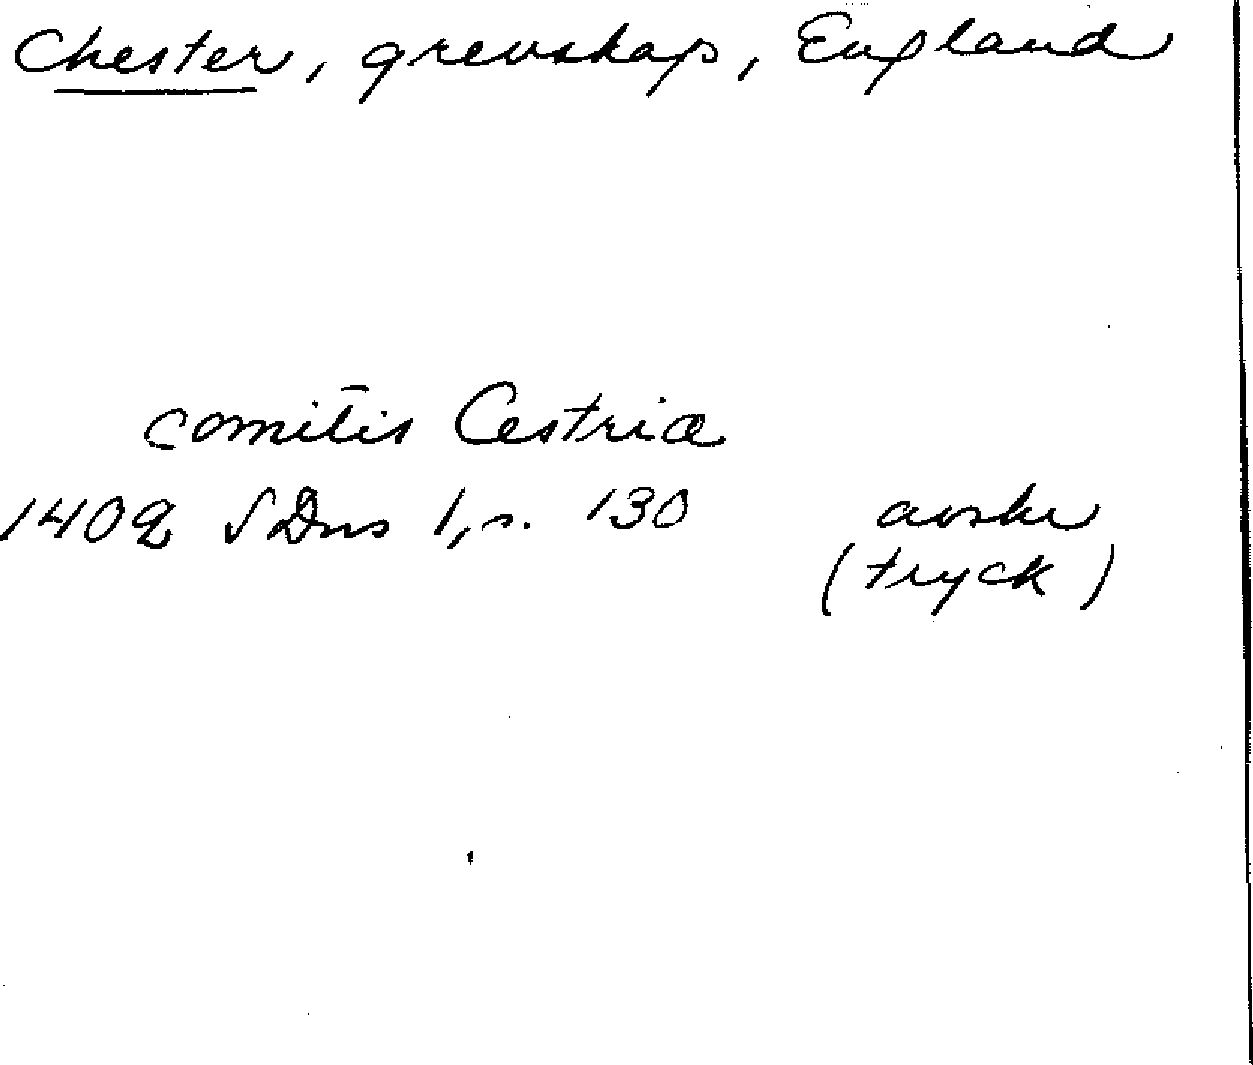 Chester, grevskap, England
comitis Cestriæ
1402 SDns 1, s. 130 avskr
(tryck)